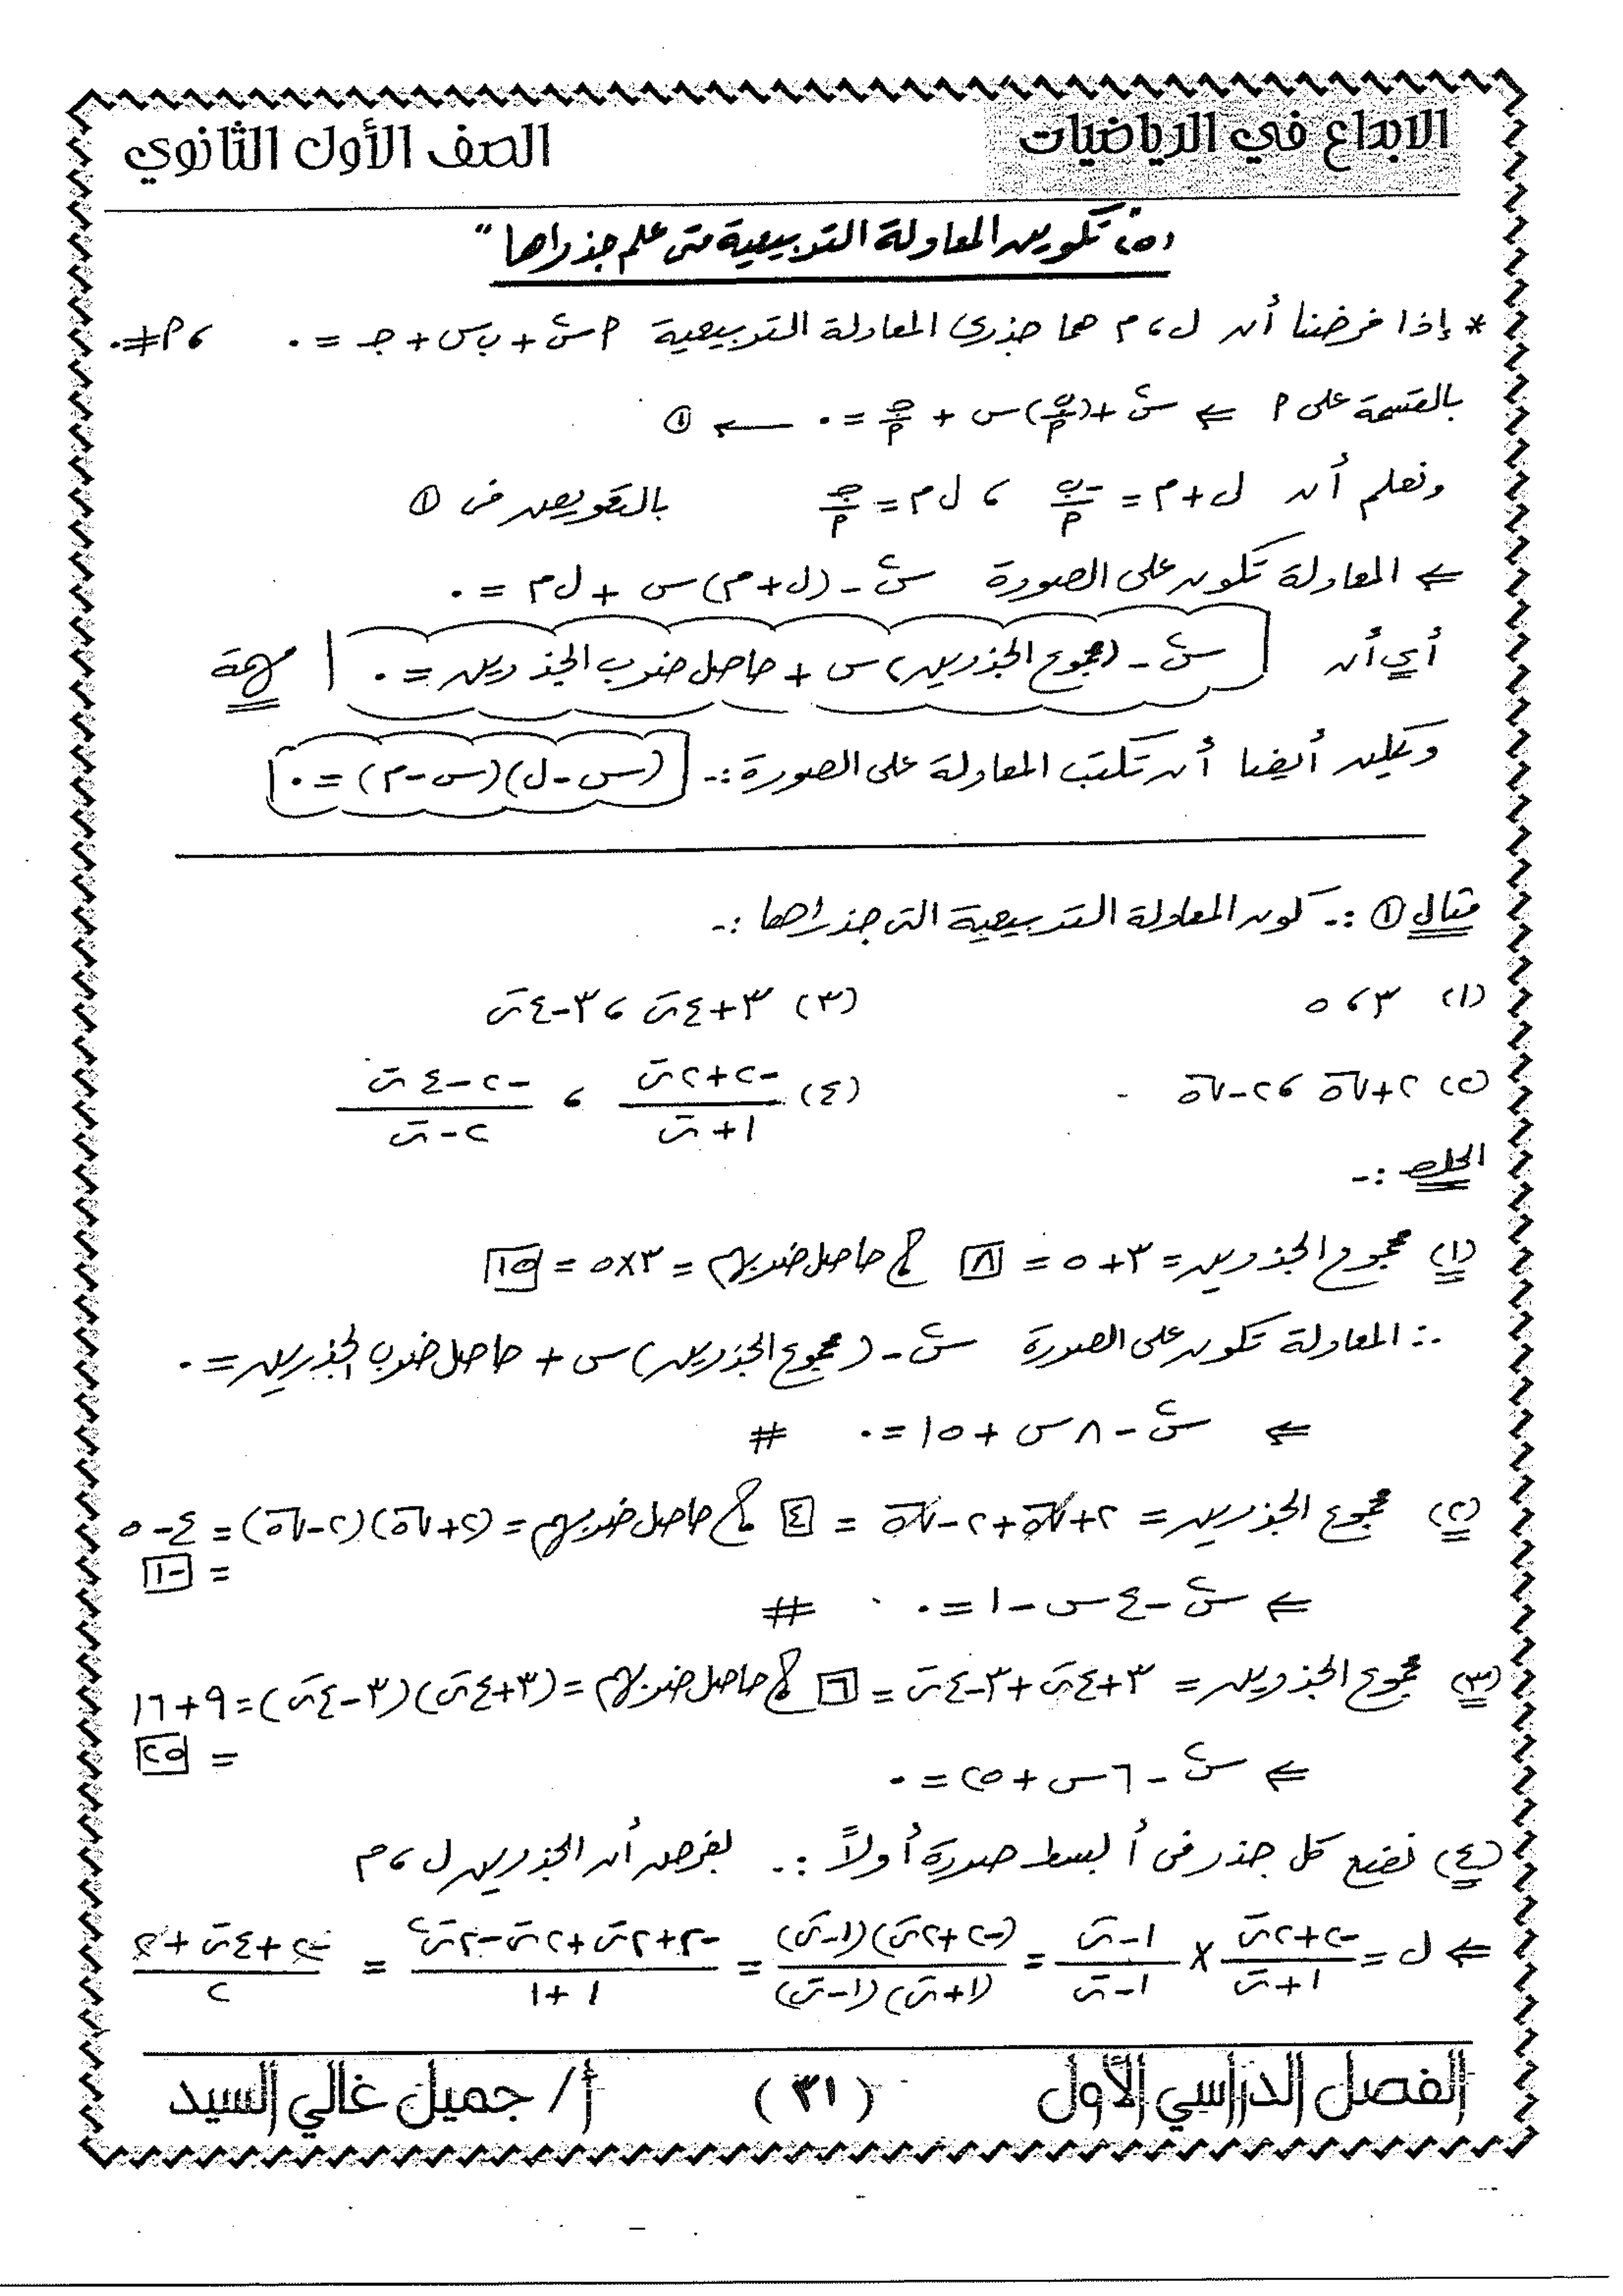 الابداع في الرياضيات
الصف الأول الثانوي
(٥) تكوين المعادلة التربيعية متى علم جذراها"
* إذا فرضنا أن ل ، م هما جذرى المعادلة التربيعية أ س٢ + ب س + جـ = ٠ ، أ ≠ ٠
بالقسمة على أ ⇐ س٢ + (ب/أ) س + جـ/أ = ٠ ← ①
ونعلم أن ل + م = -ب/أ ، ل م = جـ/أ بالتعويض فى ①
⇐ المعادلة تكون على الصورة س٢ - (ل + م) س + ل م = ٠
أي أن س٢ - (مجموع الجذرين) س + حاصل ضرب الجذرين = ٠ مهمة
ويمكن أيضا أن تكتب المعادلة على الصورة :- (س - ل)(س - م) = ٠
مثال ① :- كون المعادلة التربيعية التى جذراها :-
(١) ٣ ، ٥
(٣) ٣ + ٤ت ، ٣ - ٤ت
(٢) ٢ + √٥ ، ٢ - √٥
(٤) (-٢ + ٢ت)/(١ + ت) ، (-٢ - ٤ت)/(٢ - ت)
الحل :-
(١) مجموع الجذرين = ٣ + ٥ = ٨ ، حاصل ضربهم = ٣ × ٥ = ١٥
∴ المعادلة تكون على الصورة س٢ - (مجموع الجذرين) س + حاصل ضرب الجذرين = ٠
⇐ س٢ - ٨ س + ١٥ = ٠ #
(٢) مجموع الجذرين = ٢ + √٥ + ٢ - √٥ = ٤ ، حاصل ضربهم = (٢ + √٥)(٢ - √٥) = ٤ - ٥
= -١
⇐ س٢ - ٤ س - ١ = ٠ #
(٣) مجموع الجذرين = ٣ + ٤ت + ٣ - ٤ت = ٦ ، حاصل ضربهم = (٣ + ٤ت)(٣ - ٤ت) = ٩ + ١٦
= ٢٥
⇐ س٢ - ٦ س + ٢٥ = ٠
(٤) نضع كل جذر فى أبسط صورة أولاً :- بفرض أن الجذرين ل ، م
⇐ ل = (-٢ + ٢ت)/(١ + ت) × (١ - ت)/(١ - ت) = (-٢ + ٢ت)(١ - ت)/(١ + ت)(١ - ت) = (-٢ + ٢ت + ٢ت - ٢ت٢)/(١ + ١) = (-٢ + ٤ت + ٢)/٢
الفصل الدراسي الأول
(٣١)
أ / جميل غالي السيد